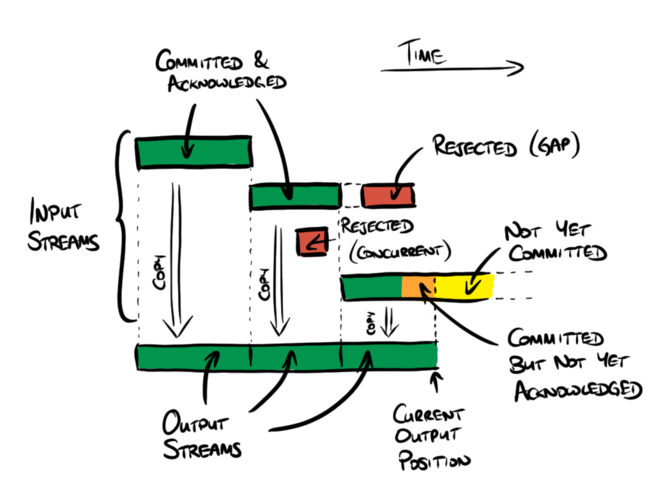 TIME
COMMITTED &
ACKNOWLEDGED
REJECTED (GAP)
INPUT
STREAMS
REJECTED
(CONCURRENT)
NOT YET
COMMITTED
COPY
COPY
COPY
COMMITTED
BUT NOT YET
ACKNOWLEDGED
OUTPUT
STREAMS
CURRENT
OUTPUT
POSITION